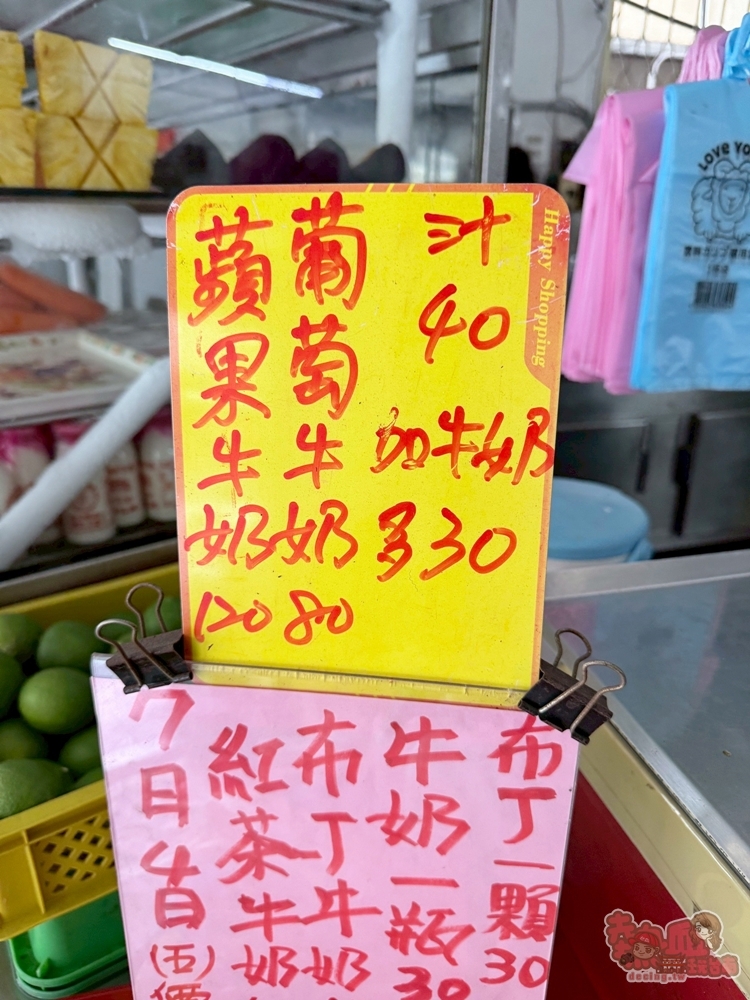 汁
40
加牛奶
多30
葡萄牛奶
80
蘋果牛奶
120
Happy Shopping
布丁一顆
30
牛奶一瓶
30
布丁牛奶
紅茶牛奶
7日
(五)價
LOVE YO
deeing.tw